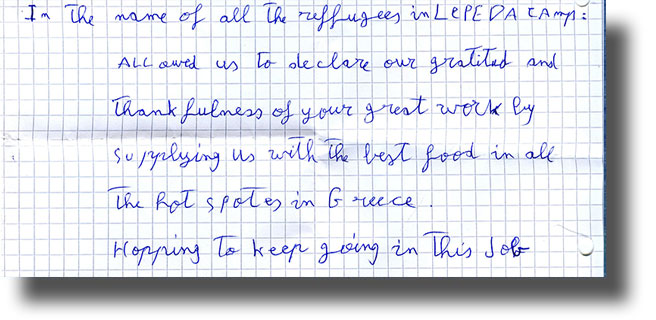 In The name of all The reffugees in LEPEDA CAmp:
ALL owed us To declare our gratitud and
Thankfulness of your great work by
supplying us with The best food in all
The hot spotes in Greece.
Hopping To keep going in This Job